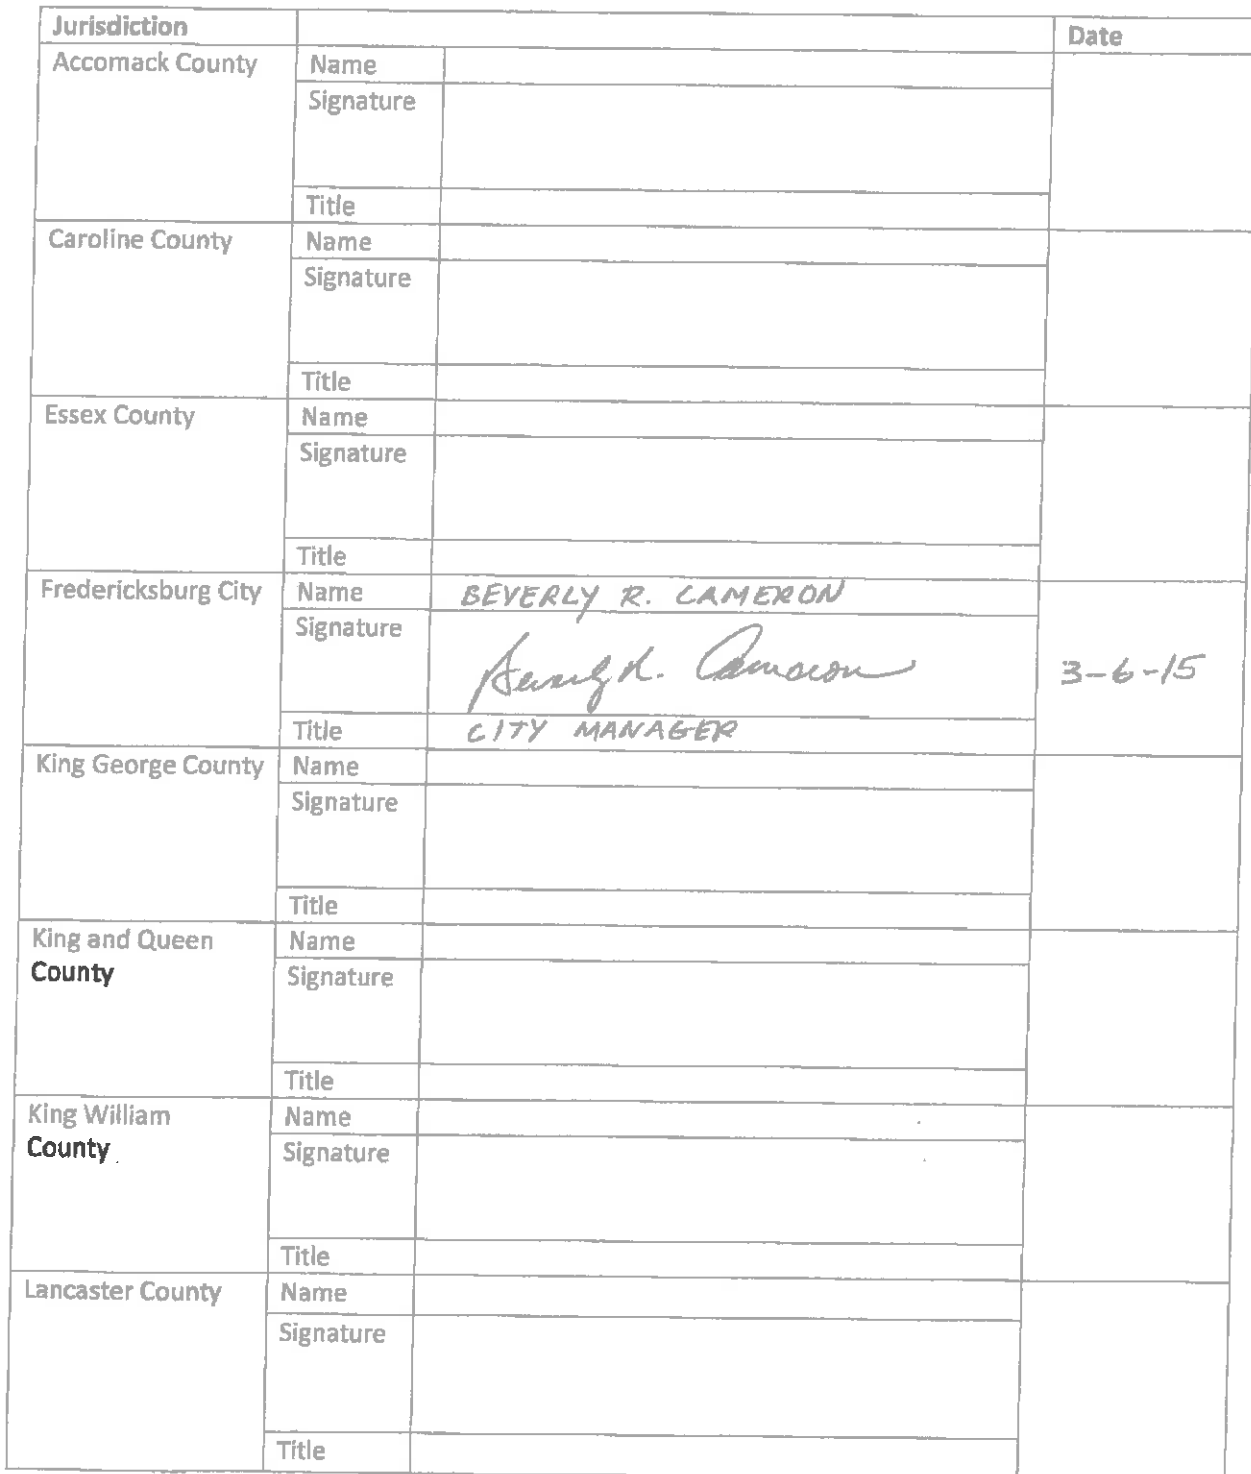 Jurisdiction Date
Accomack County Name
Signature
Title
Caroline County Name
Signature
Title
Essex County Name
Signature
Title
Fredericksburg City Name BEVERLY R. CAMERON
Signature Beverly R. Cameron 3-6-15
Title CITY MANAGER
King George County Name
Signature
Title
King and Queen Name
County Signature
Title
King William Name
County Signature
Title
Lancaster County Name
Signature
Title